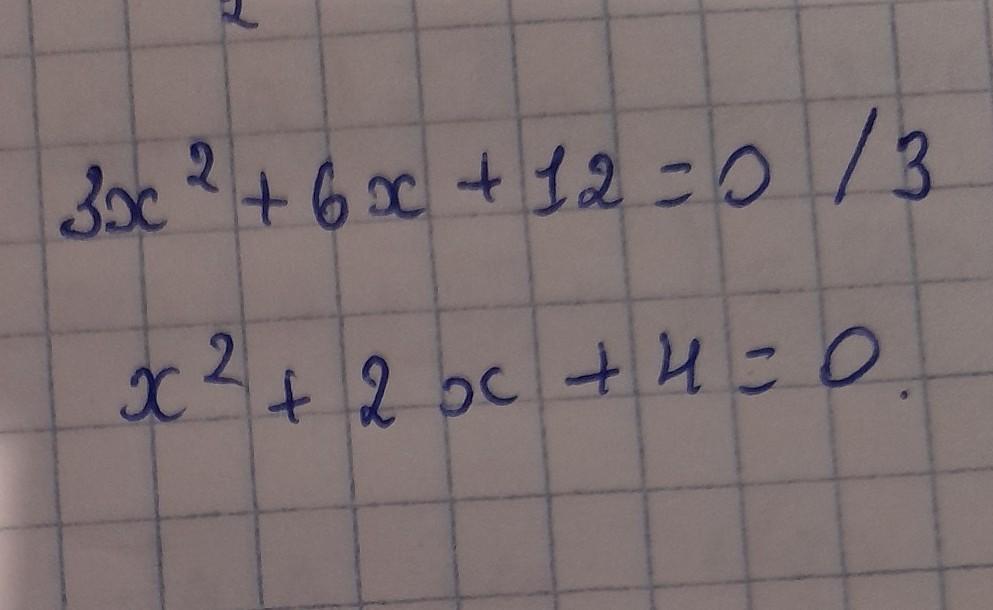 2
3x² + 6x + 12 = 0 / 3
x² + 2x + 4 = 0.